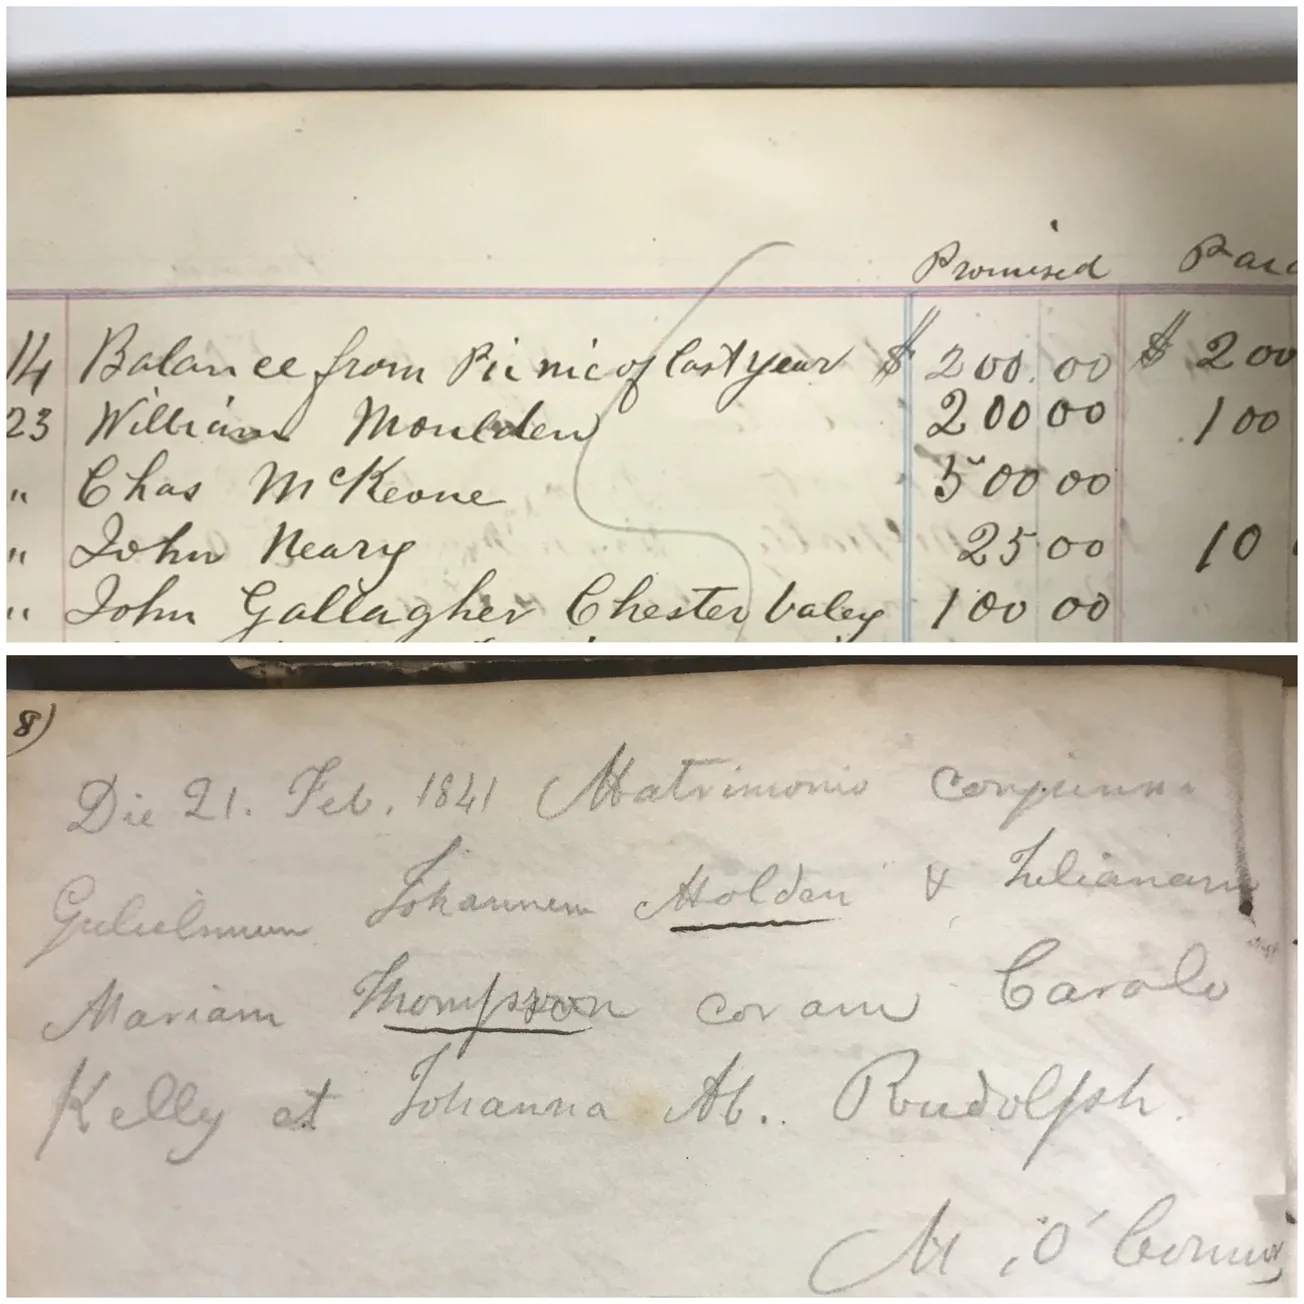 Promised Paid
14 Balance from Picnic of last year $ 200.00 $ 200
23 William Moulden 200 00 100
" Chas McKeone 500 00
" John Neary 25 00 10
" John Gallagher Chester Valey 100 00
8)
Die 21. Feb. 1841 Matrimonio
Gulielmum Johannem Molden & Julianam
Mariam Thompson coram Carolo
Kelly et Johanna M. Rudolph.
M. O'Connor